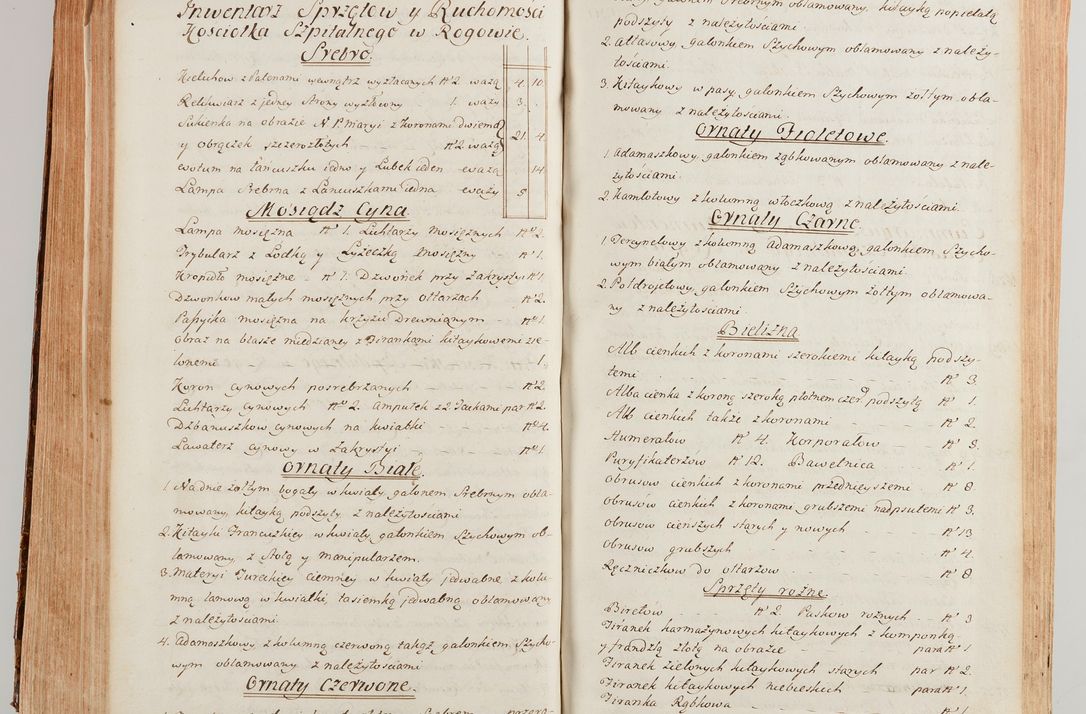 Inwentarz Sprzętow y Ruchomości
Kosciołka Szpitalnego w Rogowie.
Srebro.
Kielichow z Patenami wewnątrz wyzłacanych Nº 2. ważą 4. 10
Relikwiarz z jedney strony wyzłocony 1. ważÿ 3.
Sukienka na obrazie N. P. Maryi z koronami dwiema
y obrączek szczerozłotych Nº 2. ważą 21. 4
wotum na łancuszku iedno y Lubek ieden ważą 14
Lampa Srebrna z Lancuszkami iedna waży 5
Mosiądz Cyna.
Lampa mosiężna Nº 1. Lichtarzy Mosiężnych Nº 2.
Trybularz z Łodką y Łyżeczką Mosiężny Nº 1.
Kropidło mosiężne Nº 1. Dzwonek przy Zakrystyi Nº 1.
Dzwonkow małych mosiężnych przy Ołtarzach Nº 2.
Passyika mosiężna na krzyżu Drewnianym Nº 1.
Obraz na blasze miedzianey z Firankami kitaykowemi zie-
lonemi 1.
Koron cynowych posrebrzanych Nº 2.
Lichtarzy Cynowych Nº 2. Ampułek z 2. Tackami par Nº 2.
Dzbanuszkow cynowych na kwiatki Nº 4.
Lawaterz cynowy w Zakrystyi Nº 1.
Ornaty Białe.
1. Na dnie żołtym bogaty w kwiaty, galonem Srebrnym obla-
mowany, kitayką podszyty z należytościami
2. Kitayki Francuzkiey w kwiaty galonkiem Szychowym ob-
lamowany, z Stołą y Manipularzem.
3. Materyi Tureckiey ciemney w kwiaty jedwabne z kolu-
mną lamową w kwiatki, tasiemką jedwabną oblamowany
z należytościami.
4. Adamaszkowy z kolumną czerwoną takąż galonkiem Szycho-
wym oblamowany z należytościami
Ornaty Czerwone.
galonem Srebrnym oblamowany, kitayką popielatą
podszyty z należytościami.
2. Attasowy, galonkiem Szychowym oblamowany z należy-
tościami.
3. Kitaykowy w pasy, galonkiem Szychowym żołtym obla-
mowany z należytościami.
Ornaty Fioletowe.
1. Adamaszkowy, galonkiem ząbkowanym oblamowany z nale-
żytościami.
2. Kamlotowy z kolumną włoczkową z należytościami.
Ornaty Czarne
1. Tercynelowy z kolumną adamaszkową, galonkiem Szycho-
wym białym oblamowany z należytościami.
2. Połdrojetowy, galonkiem Szychowym żołtym oblamowa-
ny z należytościami.
Bielizna.
Alb cienkich z koronami szerokiemi kitayką podszy-
temi Nº 3.
Alba cienka z koroną szeroką płotnem czer: podszytą Nº 1.
Alb cienkich także z koronami Nº 2.
Humerałow Nº 4. Korporałow Nº 3.
Puryfikaterzow Nº 12. Bawetnica Nº 1.
Obrusow cienkich z koronami przednieyszemi Nº 8.
Obrusow cienkich z koronami grubszemi nadpsutemi Nº 3.
Obrusow cienszych starych y nowych Nº 13
Obrusow grubszych Nº 4.
Ręczniczkow do ołtarzow Nº 8
Sprzęty rożne.
Biretow Nº 2. Paskow rożnych Nº 3
Firanek karmazynowych kitaykowych z komponką
y frandzlą złotą na obrazie para Nº 1
Firanek zielonych kitaykowych starych par Nº 2.
Firanek kitaykowych niebieskich para Nº 1.
Firanka Rąbkowa Nº 1.